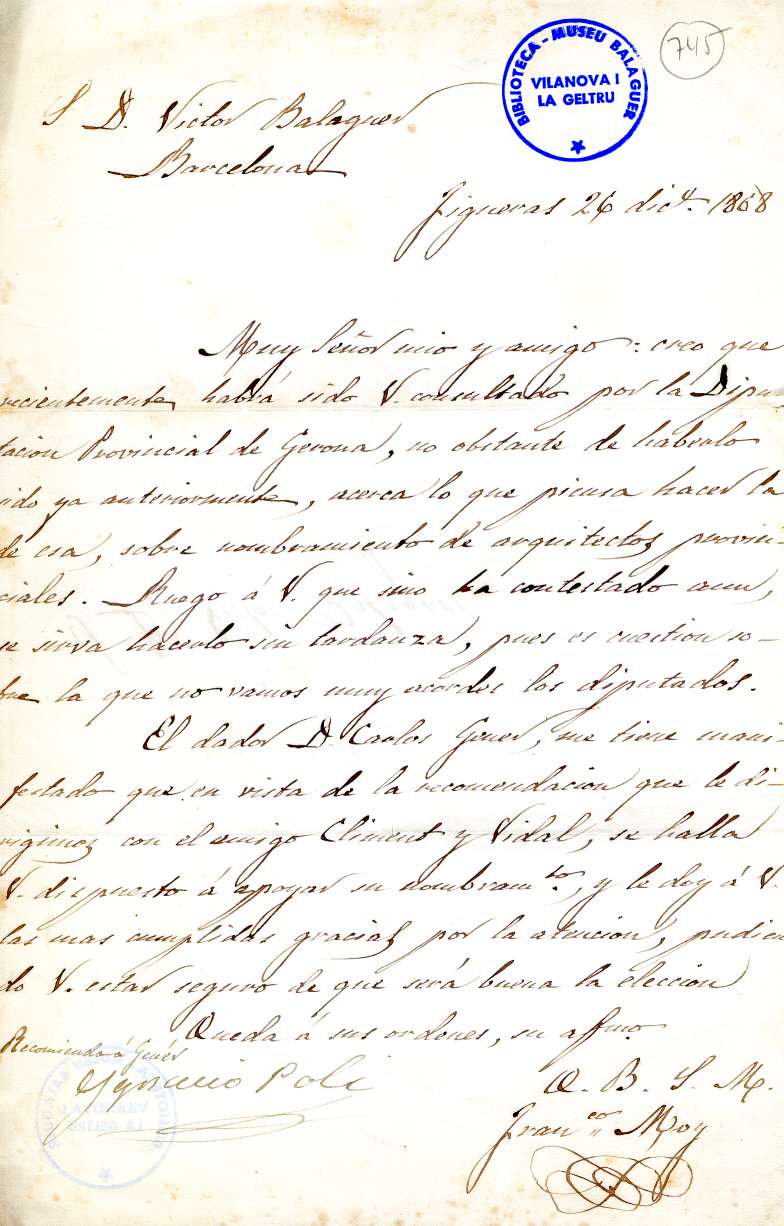 745
BIBLIOTECA - MUSEU BALAGUER
VILANOVA I
LA GELTRU
S. D. Victor Balaguer
Barcelona
Figueras 26 dice. 1868
Muy Señor mio y amigo: creo que
recientemente habrá sido V. consultado por la Dipu
tacion Provincial de Gerona, no obstante de haberlo
sido ya anteriormente, acerca lo que piensa hacer la
de esa, sobre nombramiento de arquitectos provin-
ciales. Ruego á V. que sino ha contestado aun,
se sirva hacerlo sin tardanza, pues es cuestion so-
bre la que no vamos muy acordes los diputados.
El dador D. Carlos Gener, me tiene mani-
festado que en vista de la recomendacion que le di-
rigimos con el amigo Climent y Vidal, se halla
V. dispuesto á apoyar su nombramto., y le doy á V.
las mas cumplidas gracias por la atencion, pudien
do V. estar seguro de que será buena la eleccion
Queda á sus ordenes, su affmo.
Q. B. S. M.
Franco Moy
Recomiendo á Genér
Ygnacio Poli